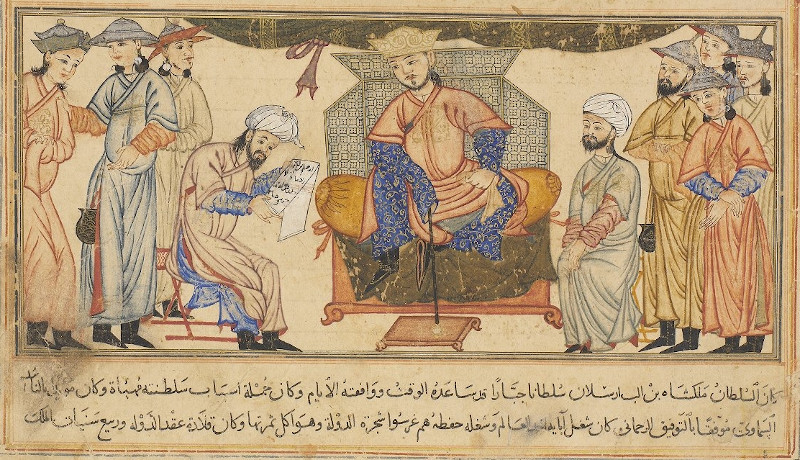 كان السلطان ملكشاه بن الب ارسلان سلطانا جبارا قد ساعده الوقت ووافقته الايام وكان جملة اسباب سلطنته مهيأة وكان
السماوي موفقا بالتوفيق الرحماني وكان شغل آبايه العالم وشغله حفظه هم غرسوا شجرة الدولة وهو اكل ثمرتها وكان قلادة عقد الدولة وربيع الملك